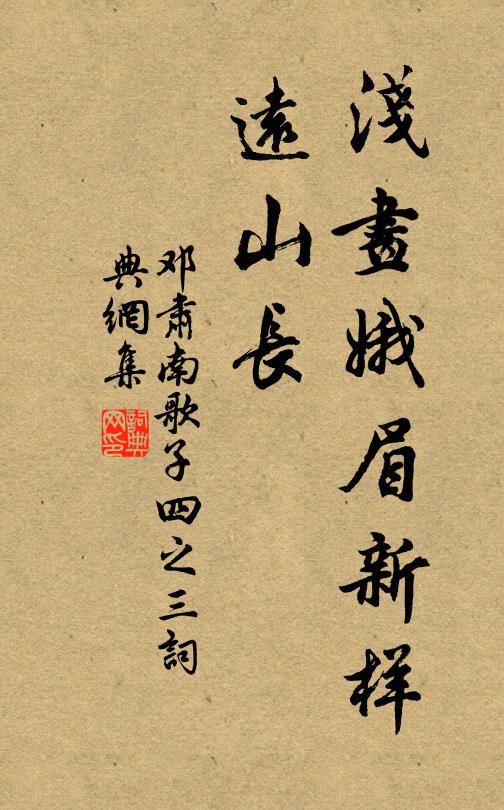 淺畫娥眉新样
遠山長
邓肅南歌子四之三詞
典網集
詞典
网印